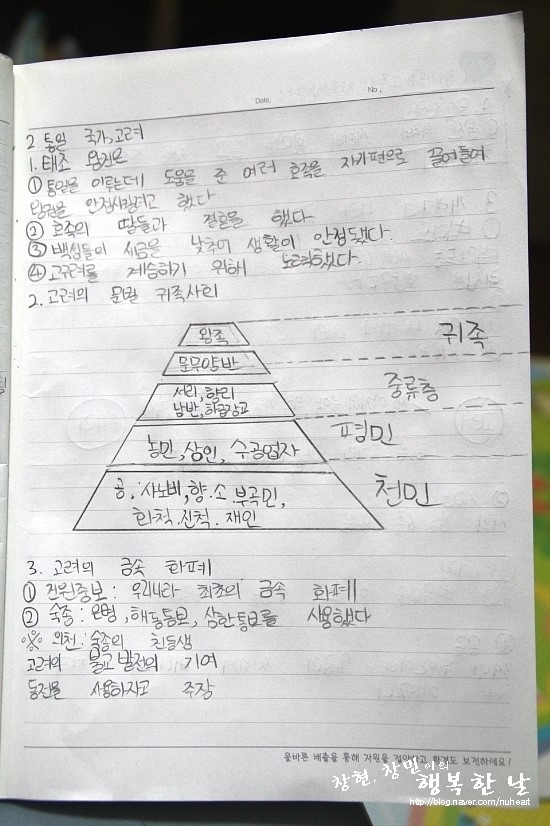 Date. No.
2 통일 국가, 고려
1. 태조 왕건은
① 통일을 이루는데 도움을 준 여러 호족을 자기편으로 끌어들여
왕권을 안정시킬려고 했다
② 호족의 딸들과 결혼을 했다
③ 백성들이 세금을 낮추어 생활이 안정됐다.
④ 고구려를 계승하기 위해 노력했다.
2. 고려의 문벌 귀족사회
왕족
귀족
문무양반
서리, 향리
남반, 하급장교
중류층
농민, 상인, 수공업자
평민
공, 사노비, 향. 소. 부곡민,
화척. 진척. 재인
천민
3. 고려의 금속 화폐
① 건원중보: 우리나라 최초의 금속 화폐
② 숙종: 은병, 해동통보, 삼한통보를 사용했다
※ 의천: 숙종의 친동생
고려의 불교 발전의 기여
동전을 사용하자고 주장
올바른 배출을 통해 자원을 절약하고 환경도 보전하세요!
창현, 창민이의
행복한 날
http://blog.naver.com/nuheart